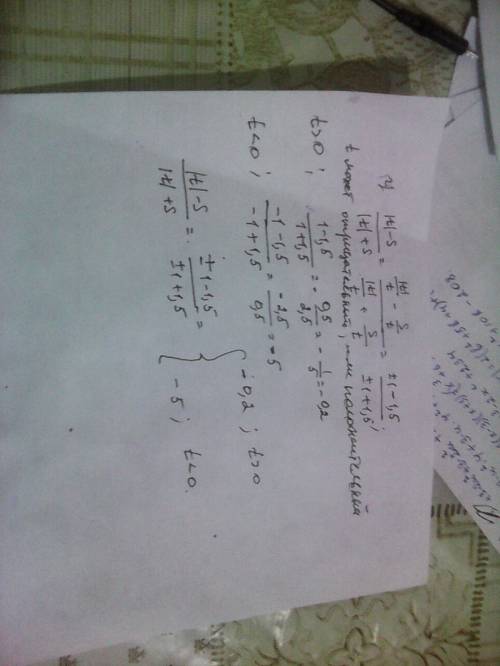 y) (|t|-S)/(|t|+S) = (|t|/t - S/t)/(|t|/t + S/t) = (±1-1,5)/(±1+1,5);
t может отрицательный, или положительный
t>0; (1-1,5)/(1+1,5) = - 0,5/2,5 = - 1/5 = -0,2
t<0; (-1-1,5)/(-1+1,5) = -2,5/0,5 = -5
(|t|-S)/(|t|+S) = (±1-1,5)/(±1+1,5) = { -0,2; t>0
-5; t<0.